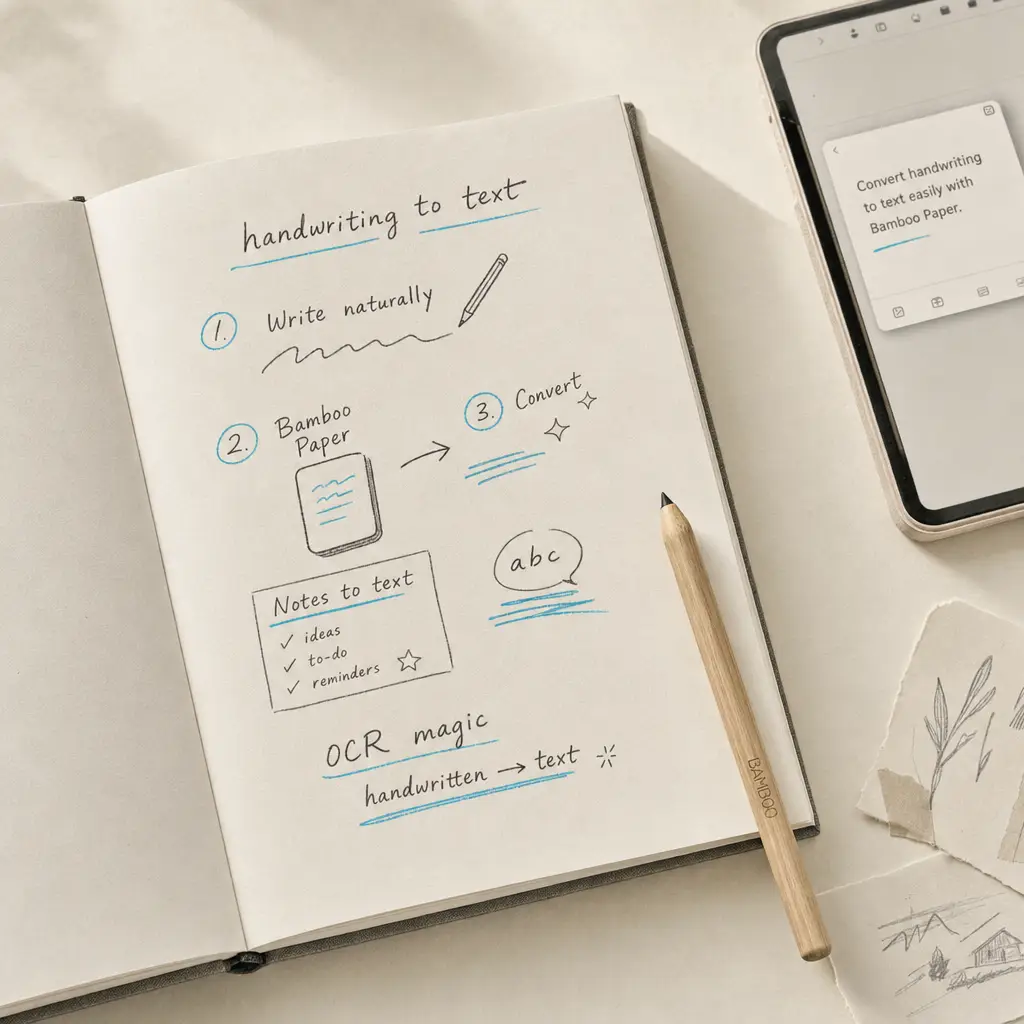 handwriting to text
1. Write naturally
2. Bamboo
Paper
3. Convert
abc
Notes to text
✓ ideas
✓ to-do
✓ reminders
OCR magic
handwritten → text
BAMBOO
Convert handwriting
to text easily with
Bamboo Paper.